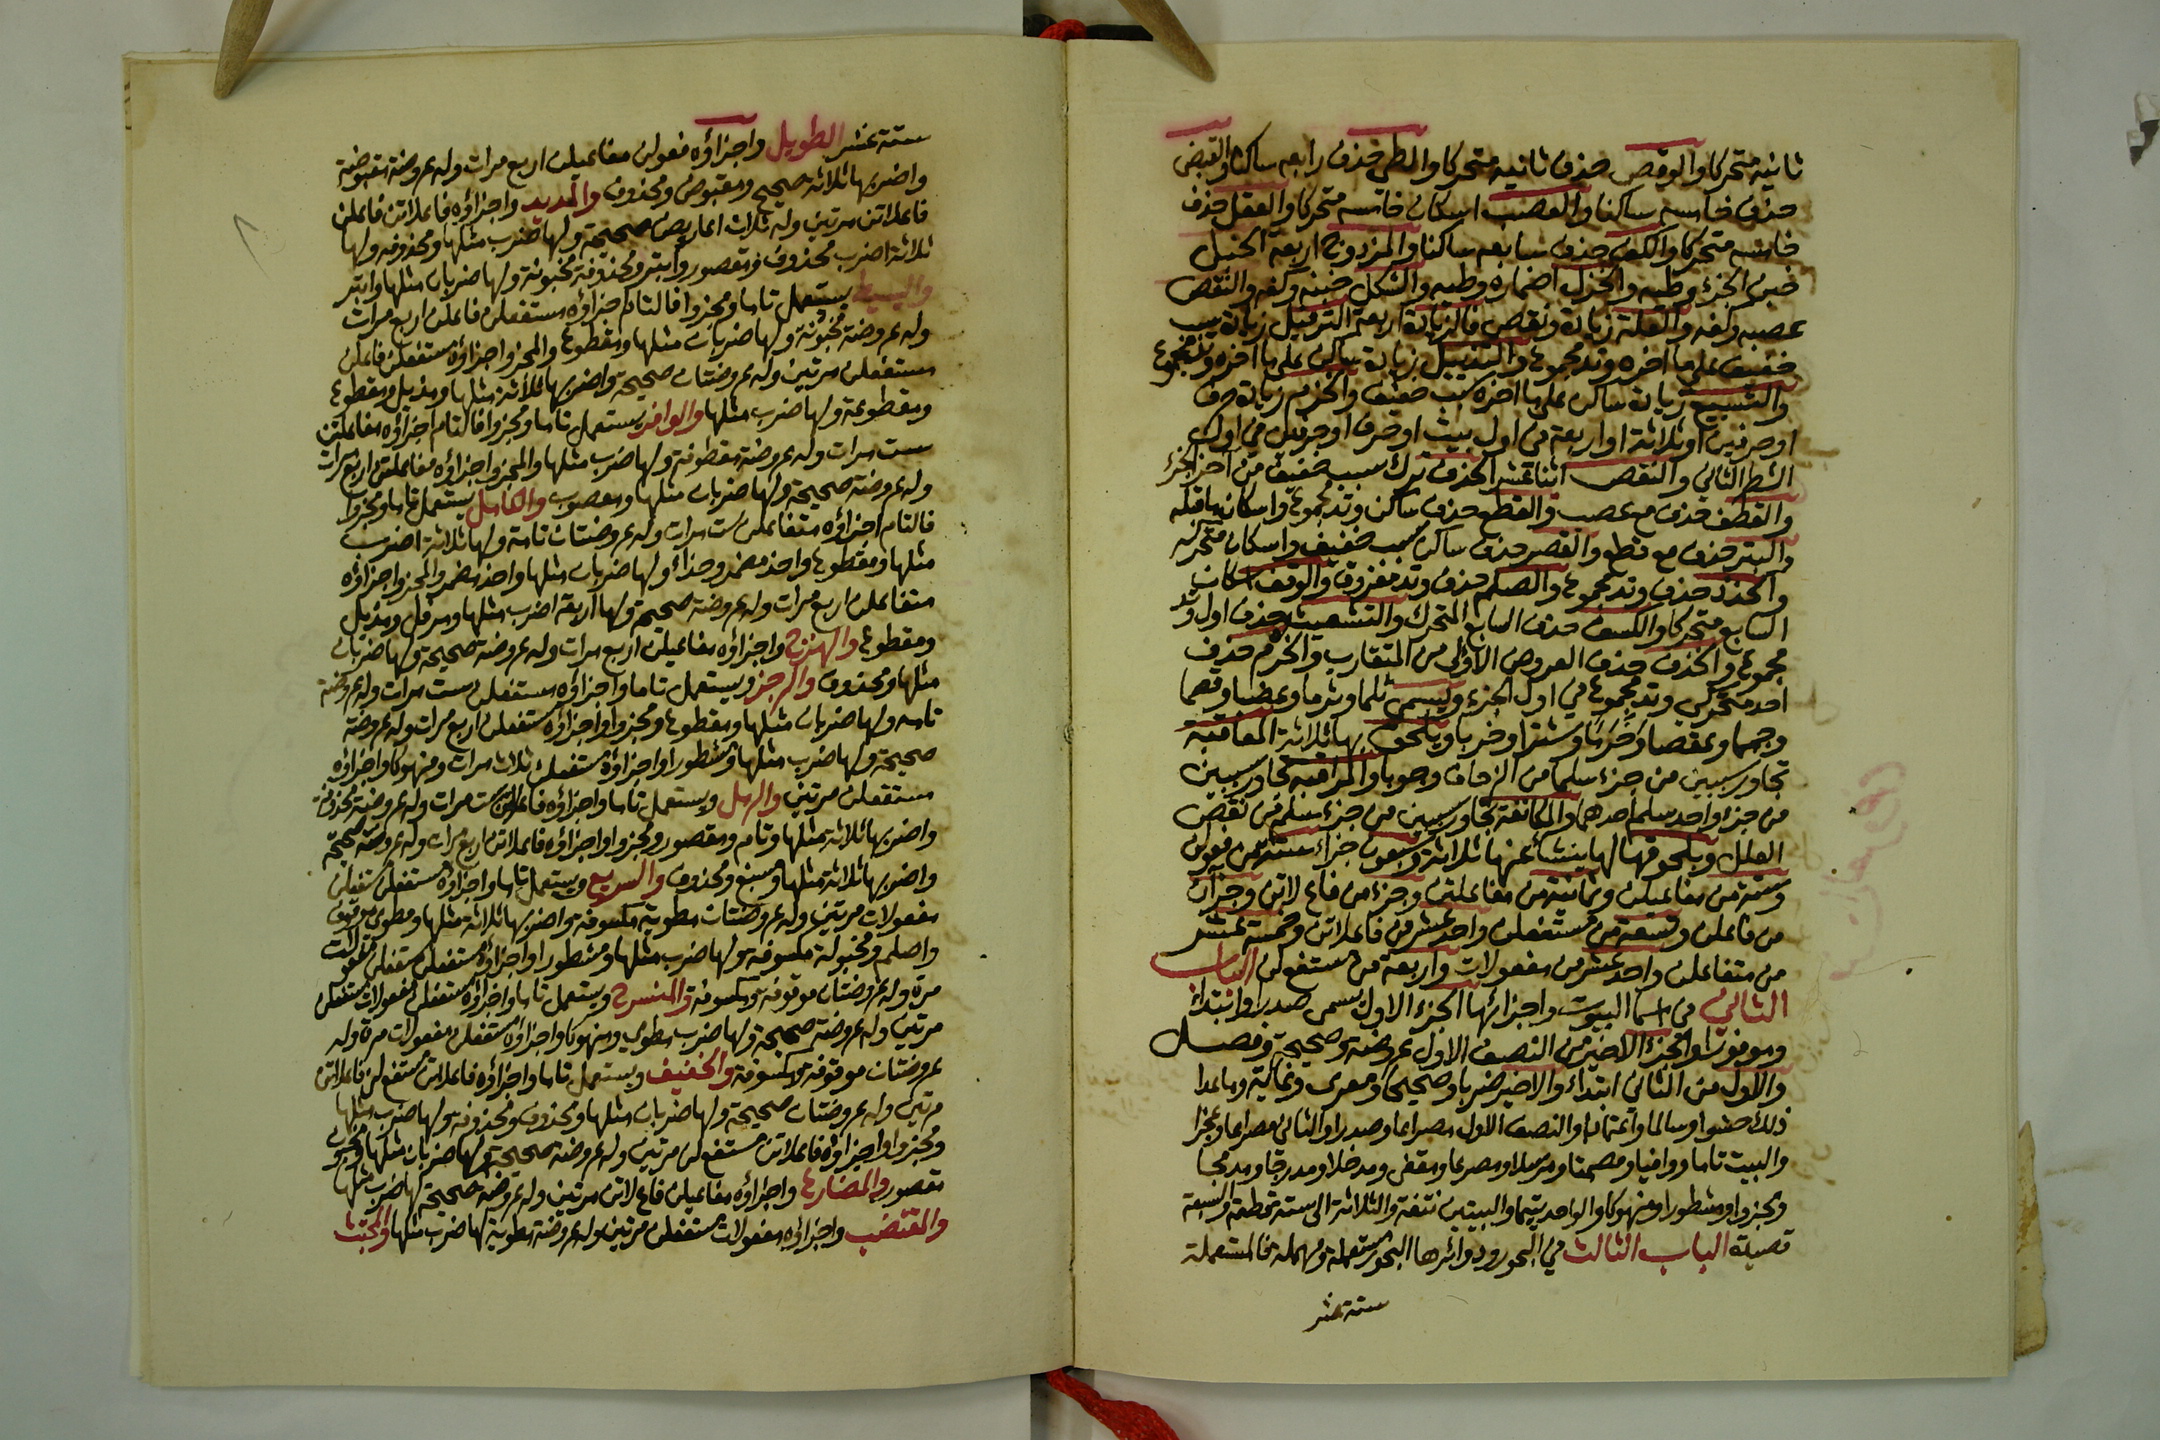 ثانيه متحركا والوقص حذف ثانيه متحركا والطي حذف رابعه ساكنا والقبض
حذف خامسه ساكنا والعصب اسكان خامسه متحركا والعقل حذف
خامسه متحركا والكف حذف سابعه ساكنا والمزدوج اربعة الخبل
خبن الجزء وطيه والخزل اضماره وطيه والشكل خبنه وكفه والنقص
عصبه وكفه والعلة زيادة ونقص فالزيادة اربعة الترفيل زيادة سبب
خفيف على ما اخره وتد مجموع والتذييل زيادة ساكن على ما اخره وتد مجموع
والتسبيغ زيادة ساكن على ما اخره سبب خفيف والخزم زيادة حرف
او حرفين او ثلاثة او اربعة في اول بيت او حرف او حرفين في اول
الشطر الثاني والنقص اثنا عشر الحذف ترك سبب خفيف من اخر الجزء
والقطف حذف مع عصب والقطع حذف ساكن وتد مجموع واسكان ما قبله
والبتر حذف مع قطع والقصر حذف ساكن سبب خفيف واسكان متحركه
والحذذ حذف وتد مجموع والصلم حذف وتد مفروق والوقف اسكان
السابع متحركا والكسف حذف السابع المتحرك والتشعيث حذف اول وتد
مجموع والحذف حذف العروض الاولى من المتقارب والخرم حذف
احد متحركي وتد مجموع في اول الجزء ويسمى ثلما وثرما وعضبا وقصما
وجمما وعقصا وخرما وشترا وخربا ويلحق بها ثلاثة المعاقبة
تجاور سببين من جزء سلما من الزحاف وجوبا والمراقبة تجاور سببين
من جزء واحد سلم احدهما والمكانفة تجاور سببين من جزء سلم من نقص
العلل وبلحوقها لها ينشأ عنها ثلاثة وسبعون جزأ ستة من فعولن
وستة من مفاعيلن وثمانية من مفاعلتن وجزء من فاع لاتن وجزآن
من فاعلن وتسعة من مستفعلن واحد عشر من فاعلاتن وخمسة عشر
من متفاعلن واحد عشر من مفعولات واربعة من مستفع لن الباب
الثاني في اسما البيوت واجزائها الجزء الاول يسمى صدرا وابتداء
وموفورا والجزء الاخير من النصف الاول عروضة وصحيحة وفصل
والاول من الثاني ابتداء والاخير ضربا وصحيحا ومعرى وغاية وما عدا
ذلك حشوا وسالما واعتمادا والنصف الاول مصراعا وصدرا والثاني مصراعا وعجزا
والبيت تاما ووافيا ومصمتا ومرسلا ومصرعا ومقفى ومدخلا ومدرجا ومدمجا
ومجزوا ومشطورا ومنهوكا والواحد يتيما والبيتين نتفة والثلاثة الى ستة قطعة والسبعة
قصيدة الباب الثالث في البحور ودوائرها البحور مستعملة ومهملة فالمستعملة
ستة عشر
ستة عشر الطويل واجزاؤه فعولن مفاعيلن اربع مرات وله عروضة مقبوضة
واضربها ثلاثة صحيح ومقبوض ومحذوف والمديد واجزاؤه فاعلاتن فاعلن
فاعلاتن مرتين وله ثلاث اعاريض صحيحة ولها ضرب مثلها ومحذوفة ولها
ثلاثة اضرب محذوف ومقصور وابتر ومحذوفة مخبونة ولها ضربان مثلها وابتر
والبسيط يستعمل تاما ومجزوا فالتام اجزاؤه مستفعلن فاعلن اربع مرات
وله عروضة مخبونة ولها ضربان مثلها ومقطوع والمجزو اجزاؤه مستفعلن فاعلن
مستفعلن مرتين وله عروضتان صحيحة واضربها ثلاثة مثلها ومذيل ومقطوع
ومقطوعة ولها ضرب مثلها والوافر يستعمل تاما ومجزوا فالتام اجزاؤه مفاعلتن
ست مرات وله عروضة مقطوفة ولها ضرب مثلها والمجزو اجزاؤه مفاعلتن اربع مرات
وله عروضة صحيحة ولها ضربان مثلها ومعصوب والكامل يستعمل تاما ومجزوا
فالتام اجزاؤه متفاعلن ست مرات وله عروضتان تامة ولها ثلاثة اضرب
مثلها ومقطوع واحذ مضمر وحذاء ولها ضربان مثلها واحذ مضمر والمجزو اجزاؤه
متفاعلن اربع مرات وله عروضة صحيحة ولها اربعة اضرب مثلها ومرفل ومذيل
ومقطوع والهزج واجزاؤه مفاعيلن اربع مرات وله عروضة صحيحة ولها ضربان
مثلها ومحذوف والرجز ويستعمل تاما واجزاؤه مستفعلن ست مرات وله عروضة
تامه ولها ضربان مثلها ومقطوع ومجزوا واجزاؤه مستفعلن اربع مرات وله عروضة
صحيحة ولها ضرب مثلها ومشطورا واجزاؤه مستفعلن ثلاث مرات ومنهوكا واجزاؤه
مستفعلن مرتين والرمل ويستعمل تاما واجزاؤه فاعلاتن ست مرات وله عروضة محذوفة
واضربها ثلاثة مثلها وتام ومقصور ومجزوا واجزاؤه فاعلاتن اربع مرات وله عروضة صحيحة
واضربها ثلاثة مثلها ومسبغ ومحذوف والسريع ويستعمل تاما واجزاؤه مستفعلن مستفعلن
مفعولات مرتين وله عروضتان مطوية مكسوفة واضربها ثلاثة مثلها ومطوي موقوف
واصلم ومخبولة مكسوفة ولها ضرب مثلها ومشطورا واجزاؤه مستفعلن مستفعلن مفعولات
مرة وله عروضتان موقوفة ومكسوفة والمنسرح ويستعمل تاما واجزاؤه مستفعلن مفعولات مستفعلن
مرتين وله عروضة صحيحة ولها ضرب مطوي ومنهوكا واجزاؤه مستفعلن مفعولات مرة وله
عروضتان موقوفة ومكسوفة والخفيف ويستعمل تاما واجزاؤه فاعلاتن مستفع لن فاعلاتن
مرتين وله عروضتان صحيحة ولها ضربان مثلها ومحذوف ومحذوفة ولها ضرب مثلها
ومجزوا واجزاؤه فاعلاتن مستفع لن مرتين وله عروضة صحيحة ولها ضربان مثلها ومخبون
مقصور والمضارع واجزاؤه مفاعيلن فاع لاتن مرتين وله عروضة صحيحة لها ضرب مثلها
والمقتضب واجزاؤه مفعولات مستفعلن مرتين وله عروضة مطوية لها ضرب مثلها والمجتث